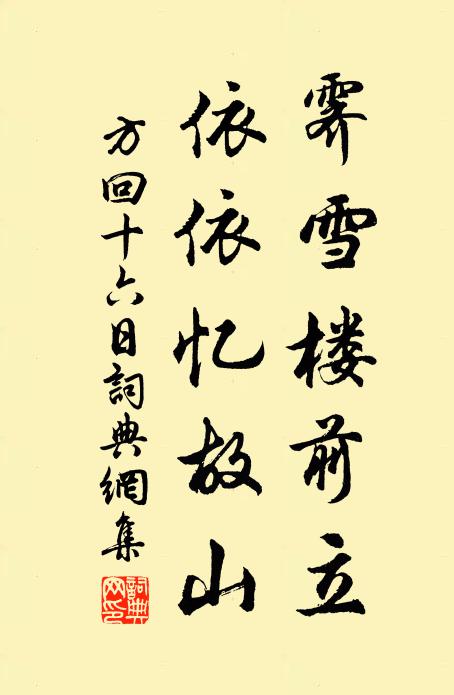 霁雪楼前立
依依忆故山
方回十六日詞典網集
詞典网印